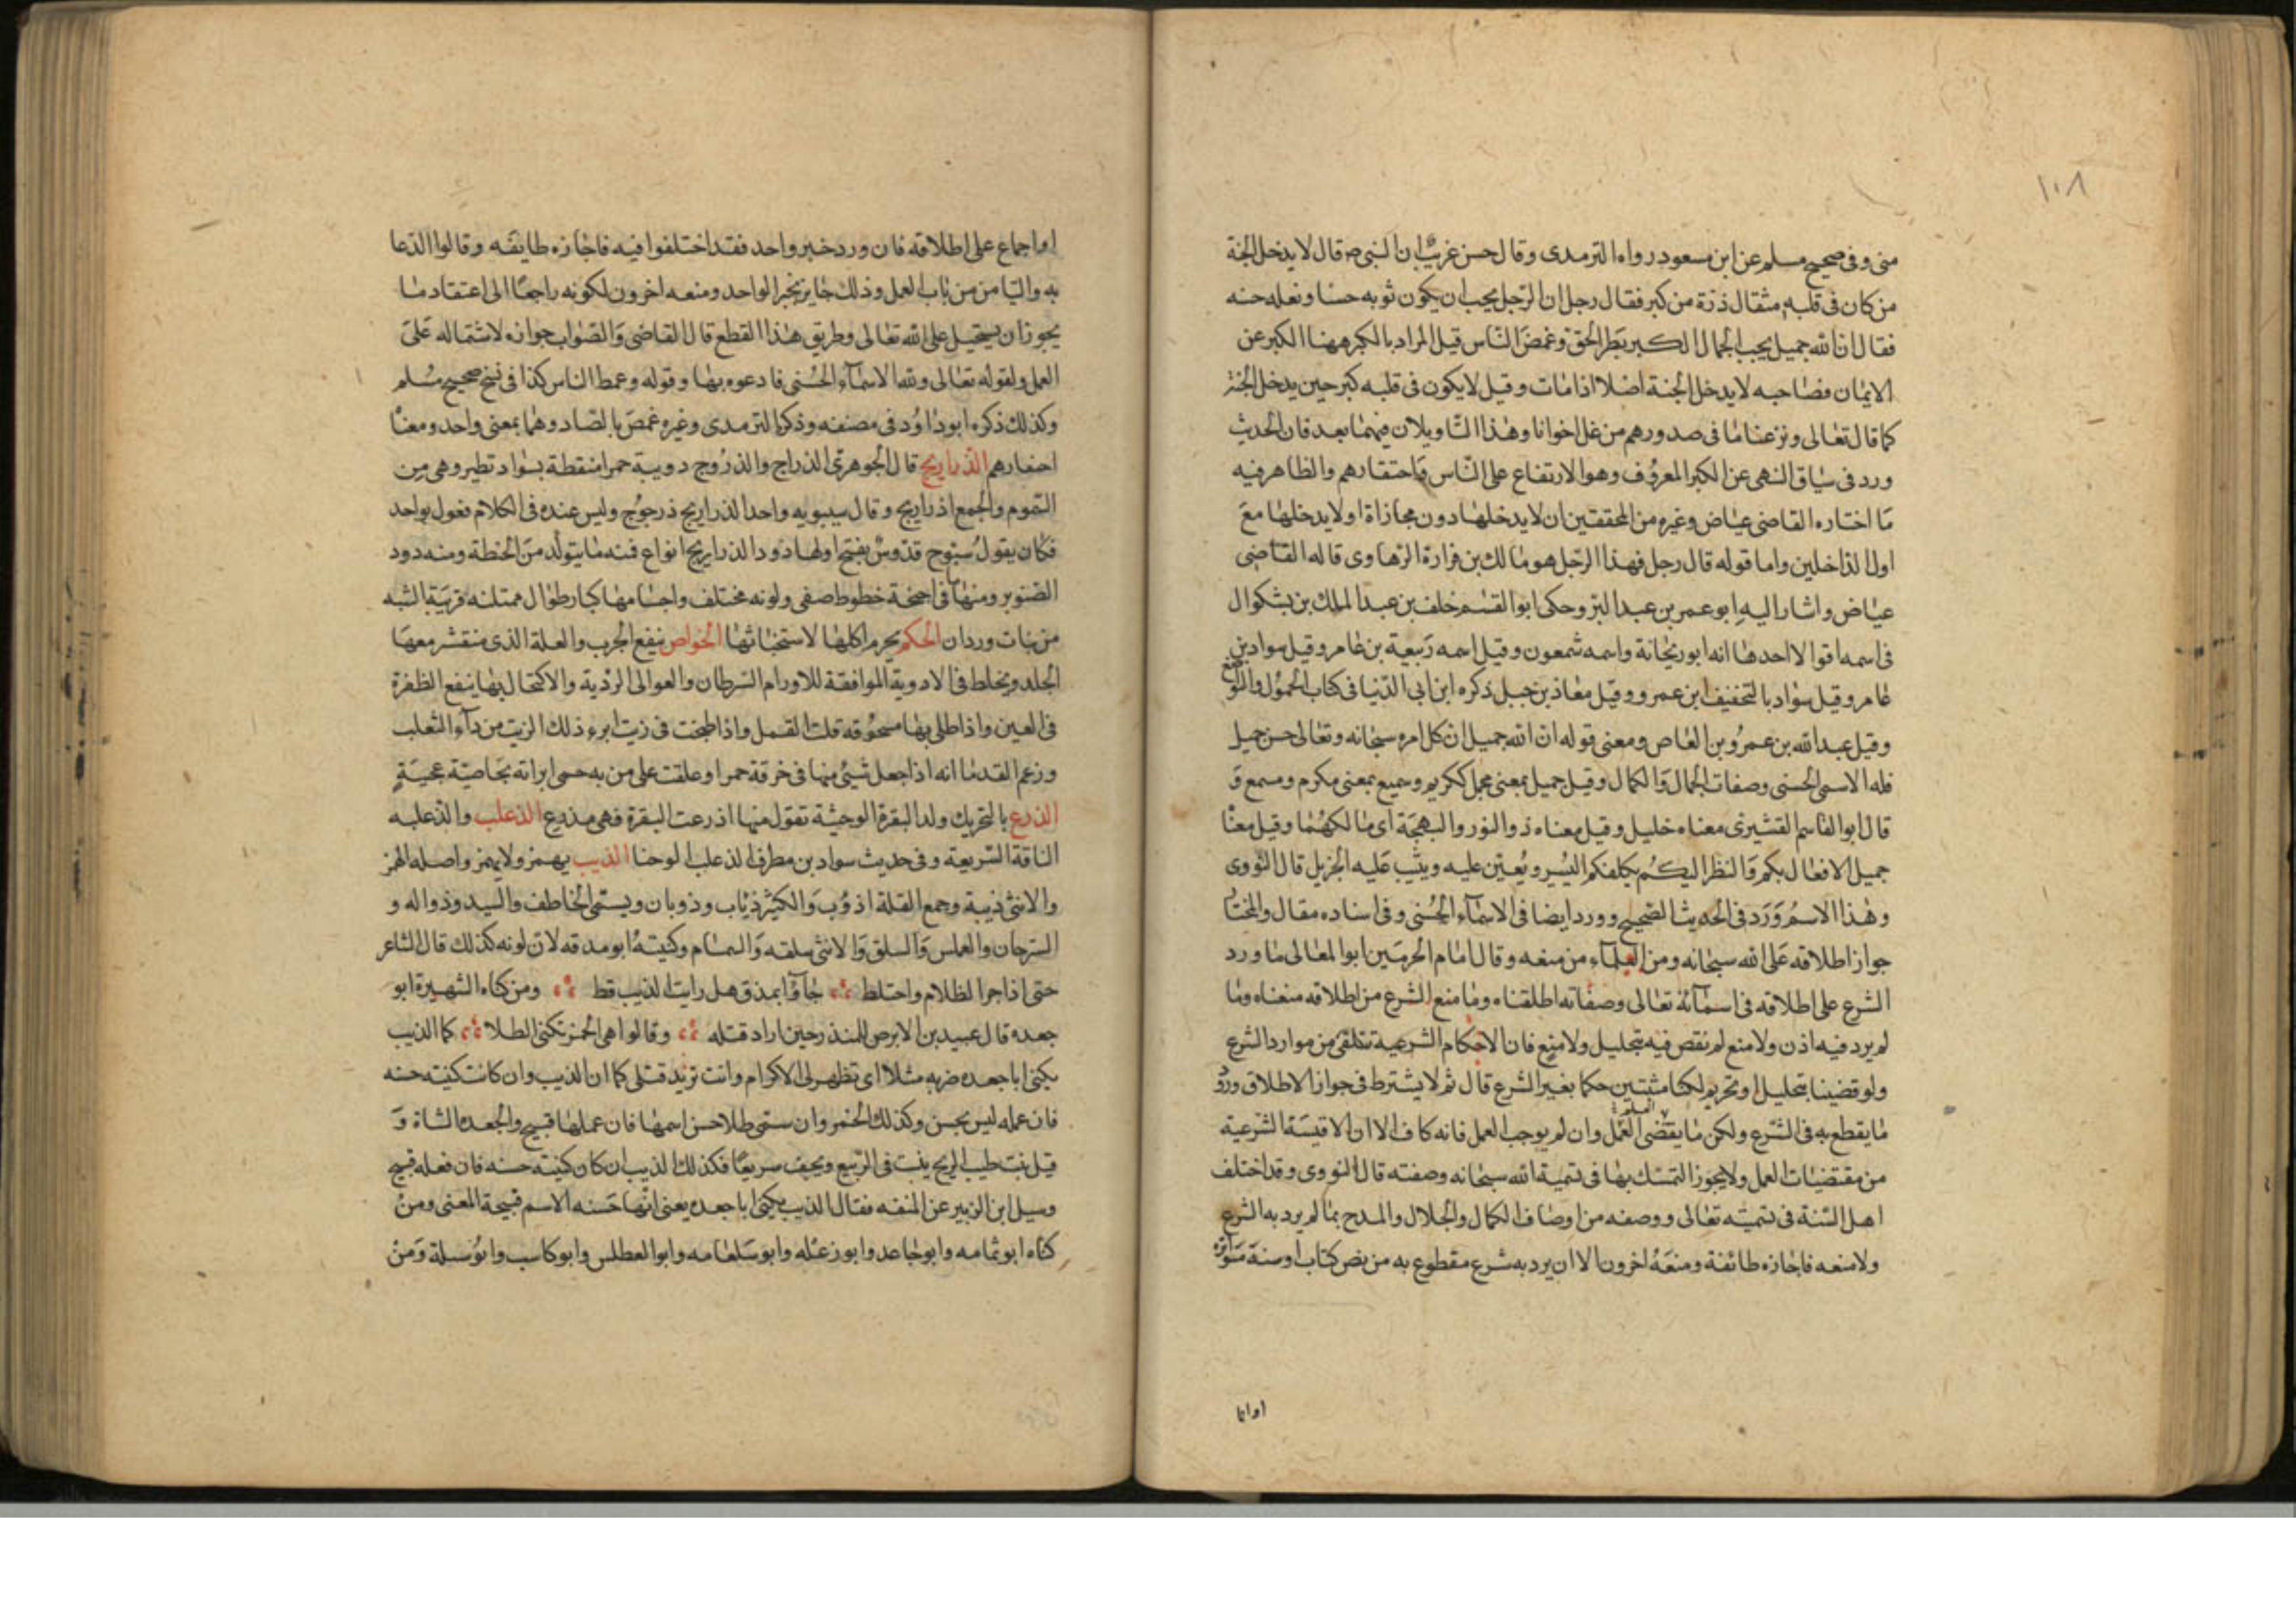 ١٠٨
منى وفى صحيح مسلم عن ابن مسعود رواه الترمدى وقال حسن غريب ان النبى ص قال لا يدخل الجنة
من كان فى قلبه مثقال ذرة من كبر فقال رجل ان الرجل يحب ان يكون ثوبه حسنا ونعله حسنه
فقال ان الله جميل يحب الجمال الكبر بطر الحق وغمض الناس قيل المراد بالكبر ههنا الكبر عن
الايمان فصاحبه لا يدخل الجنة اصلا اذا مات وقيل لا يكون فى قلبه كبر حين يدخل الجنة
كما قال تعالى ونزعنا ما فى صدورهم من غل اخوانا وهذا التاويلان فيهما بعد فان الحديث
ورد فى سياق النهى عن الكبر المعروف وهو الارتفاع على الناس واحتقارهم والظاهر فيه
ما اختاره القاضى عياض وغيره من المحققين ان لا يدخلها دون مجازاة او لا يدخلها مع
اول الداخلين واما قوله قال رجل فهذا الرجل هو مالك بن فرارة الرهاوى قاله القاضى
عياض واشار اليه ابو عمر بن عبد البر وحكى ابو القسم خلف بن عبد الملك بن بشكوال
فى اسمه اقوالا احدها انه ابو ريحانة واسمه شمعون وقيل اسمه ربيعة بن عامر وقيل سواد بن
عامر وقيل سواد بالتخفيف ابن عمرو وقيل معاذ بن جبل ذكره ابن ابى الدنيا فى كتاب الخمول والتواضع
وقيل عبد الله بن عمرو بن العاص ومعنى قوله ان الله جميل ان كل امره سبحانه وتعالى حسن جميل
فله الاسمى الحسنى وصفات الجمال والكمال وقيل جميل بمعنى مجمل ككريم وسميع بمعنى مكرم ومسمع و
قال ابو القاسم القشيرى معناه خليل وقيل معناه ذو النور والبهجة اى مالكهما وقيل معناه
جميل الافعال بكم والنظر اليكم يكلفكم اليسير ويعين عليه ويثيب عليه الجزيل قال النووى
وهذا الاسم ورد فى الحديث الصحيح وورد ايضا فى الاسماء الحسنى وفى اسناده مقال والمختار
جواز اطلاقه على الله سبحانه ومن العلماء من منعه وقال امام الحرمين ابو المعالى ما ورد
الشرع على اطلاقه فى اسمائه تعالى وصفاته اطلقناه وما منع الشرع من اطلاقه منعناه وما
لم يرد فيه اذن ولا منع لم نقض فيه بتحليل ولا منع فان الاحكام الشرعية تتلقى من موارد الشرع
ولو قضينا بتحليل او تحريم لكنا مثبتين حكما بغير الشرع قال ثم لا يشترط فى جواز الاطلاق ورود
ما يقطع به فى الشرع ولكن ما يقتضى العمل وان لم يوجب العلم فانه كاف الا ان الاقيسة الشرعية
من مقتضيات العمل ولا يجوز التمسك بها فى تسمية الله سبحانه وصفته قال النووى وقد اختلف
اهل السنة فى تسميته تعالى ووصفه من اوصاف الكمال والجلال والمدح بما لم يرد به الشرع
ولا منعه فاجازه طائفة ومنعه اخرون الا ان يرد به شرع مقطوع به من نص كتاب او سنة متواترة
او اجماع على اطلاقه فان ورد خبر واحد فقد اختلفوا فيه فاجازه طايفه وقالوا الدعا
به والثنا من من باب العمل وذلك جايز بخبر الواحد ومنعه اخرون لكونه راجعا الى اعتقاد ما
يجوز ان يستحيل على الله تعالى وطريق هذا القطع قال القاضى والصواب جوازه لاشتماله على
العمل ولقوله تعالى ولله الاسماء الحسنى فادعوه بها وقوله وعمط الناس كذا فى نسخ صحيح مسلم
وكذلك ذكره ابو داود فى مصنفه وذكر الترمدى وغيره غمص بالصاد وهما بمعنى واحد ومعناه
احتقارهم الذراريح قال الجوهرى الذراح والذروح دويبة حمرا منقطة بسواد تطير وهى من
السموم والجمع اذراريح وقال سيبويه واحد الذراريح ذرحوح وليس عنده فى الكلام فعول بواحد
فكان يقول سبوح قدوس بفتح اولها ذود الذراريح انواع فمنه ما يتولد من الحنطة ومنه دود
الصنوبر ومنها فى اجنحة خطوط صفى ولونه مختلف واجسامها كبار طوال ممتلئه قريبة الشبه
من بنات وردان الحكم يحرم اكلها لاستخباثها الخواص ينفع الجرب والعلة الذى منقشر معها
الجلد ويخلط فى الادوية الموافقة للاورام السرطان والعوالى الردية والاكتحال بها ينفع الظفرة
فى العين واذا طلى بها مسحوقه قلت القمل واذا طبخت فى زيت ابرء ذلك الزيت من داء الثعلب
وزعم القدما انه اذا جعل شئ منها فى خرقة حمرا وعلقت على من به حمى ابراته بخاصية عجيبة
الذرع بالتحريك ولد البقرة الوحشية تقول منها اذرعت البقرة فهى مذرع الذعلب والذعلبه
الناقة السريعة وفى حديث سواد بن مطرف الذعلب الوحنا الذيب يهمز ولا يهمز واصله الهمز
والانثى ذيبة وجمع القلة اذوب والكثير ذئاب وذوبان ويسمى الخاطف والسيد وذواله و
السرحان والعملس والسلق والانثى سلقه والسمسام وكنيته ابو مدقه لان لونه كذلك قال الشاعر
حتى اذا جرا الظلام واختلط جاؤا بمذق هل رايت الذيب قط ومن كناه الشهيرة ابو
جعده قال عبيد بن الابرص للمنذر حين اراد قتله وقالوا هى الخمر تكنى الطلا كما الذيب
يكنى ابا جعده ضربه مثلا اى تظهر لى الاكرام وانت تريد قتلى كما ان الذيب وان كانت كنيته حسنه
فان عمله ليس بحسن وكذلك الخمر وان ستمى طلا حسن اسمها فان عملها قبيح والجعده الشاة و
قيل نبت طيب الريح ينبت فى الربيع ويجف سريعا فكذلك الذيب ان كان كنيته حسنه فان فعله قبيح
وسيل ابن الزبير عن المتعه فقال الذيب يكنى ابا جعده يعنى انها حسنه الاسم قبيحة المعنى ومن
كناه ابو ثمامه وابو جاعد وابو زعله وابو سلعامه وابو العطلس وابو كاسب وابو سلة ومن